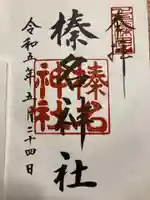 奉拝
榛名神社
榛名神社
令和五年五月二十四日